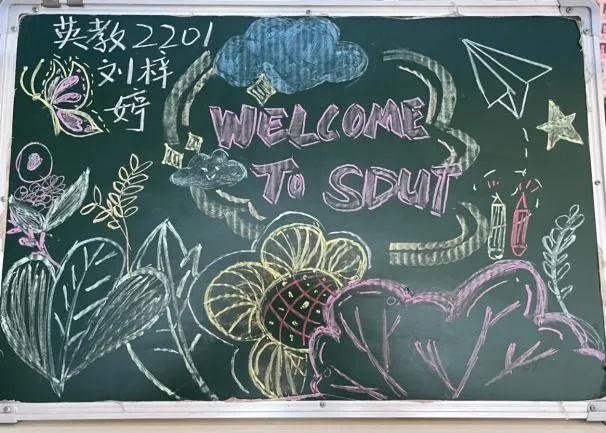 英教2201
刘梓
婷
WELCOME
To SDUT